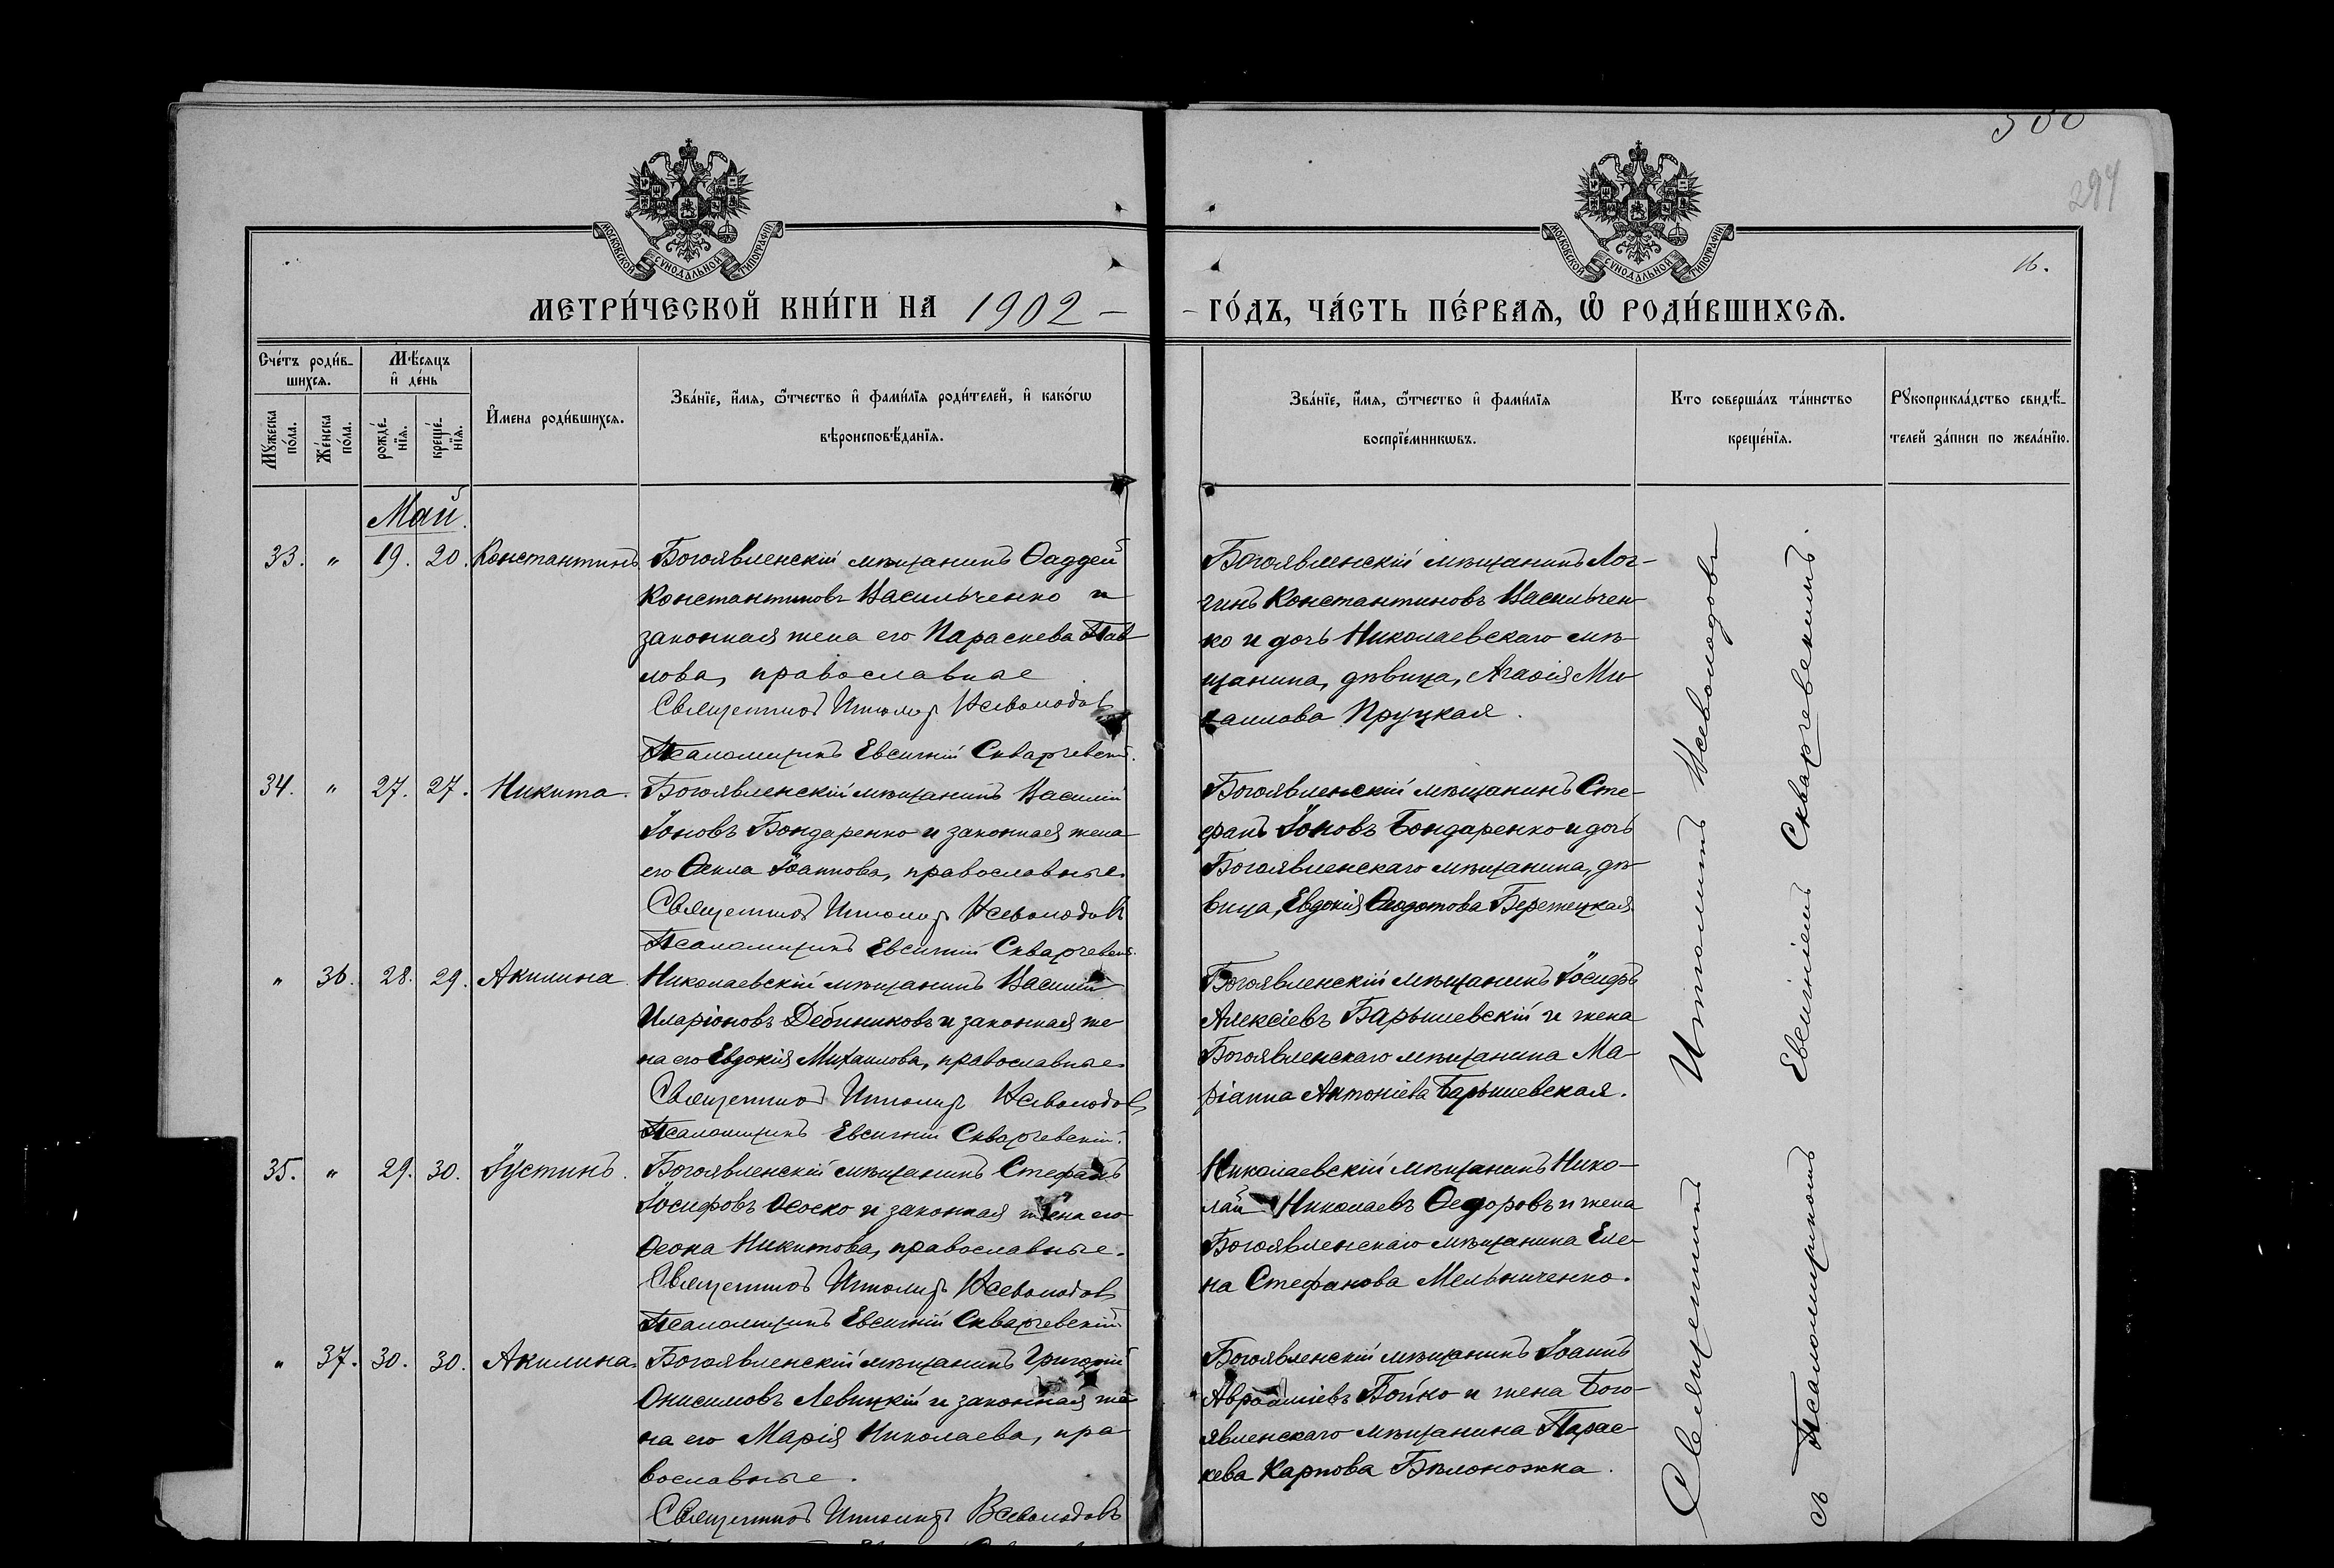 300
294
16.
МОСКОВСКОЙ СѴНОДАЛЬНОЙ ТИПОГРАФІИ
МОСКОВСКОЙ СѴНОДАЛЬНОЙ ТИПОГРАФІИ
МЕТРИ́ЧЕСКОЙ КНИ́ГИ НА 1902 –
– ГО́ДЪ, ЧА́СТЬ ПЕ́РВАѦ, Ѡ РОДИ́ВШИХСѦ.
Сче́тъ роди́в-
шихсѧ.
Мѣ́сѧцъ
и҆ де́нь
Мꙋ́жеска
по́ла.
Же́нска
по́ла.
рожде́-
нїѧ.
креще́-
нїѧ.
И҆мена роди́вшихсѧ.
Зва́нїе, и҆́мѧ, ѻ҆́тчество и҆ фами́лїѧ роди́телей, и҆ како́гѡ
вѣроисповѣ́данїѧ.
Зва́нїе, и҆́мѧ, ѻ҆́тчество и҆ фами́лїѧ
воспрїе́мникѡвъ.
Кто соверша́лъ та́инство
креще́нїѧ.
Рꙋкоприкла́дство свидѣ́-
телей за́писи по жела́нїю.
Май.
33. " 19. 20. Константинъ
Богоявленскій мѣщанинъ Ѳаддей
Константиновъ Васильченко и
законная жена его Параскева Пав
лова, православные
Священникъ Ипполитъ Всеволодовъ
Псаломщикъ Евсигній Скваргевскій.
Богоявленскій мѣщанинъ Лог-
гинъ Константиновъ Васильчен
ко и дочь Николаевскаго мѣ-
щанина, дѣвица, Агаѳія Ми
хаилова Пруцкая.
34. " 27. 27. Никита.
Богоявленскій мѣщанинъ Василій
Іоновъ Бондаренко и законная жена
его Ѳекла Іоаннова, православные.
Священникъ Ипполитъ Всеволодовъ
Псаломщикъ Евсигній Скваргевскій.
Богоявленскій мѣщанинъ Сте-
фанъ Іоновъ Бондаренко и дочь
Богоявленскаго мѣщанина, дѣ-
вица, Евдокія Ѳеодотова Бережецкая
" 36. 28. 29. Акилина.
Николаевскій мѣщанинъ Василій
Иларіоновъ Дебиниковъ и законная же
на его Евдокія Михаилова, православные
Священникъ Ипполитъ Всеволодовъ
Псаломщикъ Евсигній Скваргевскій.
Богоявленскій мѣщанинъ Іосифъ
Алексіевъ Барышевскій и жена
Богоявленскаго мѣщанина Ма-
ріанна Антоніева Барышевская.
35. " 29. 30. Іустинъ.
Богоявленскій мѣщанинъ Стефанъ
Іосифовъ Ососко и законная жена его
Ѳеона Никитова, православные.
Священникъ Ипполитъ Всеволодовъ
Псаломщикъ Евсигній Скваргевскій
Николаевскій мѣщанинъ Нико-
лай Николаевъ Ѳедоровъ и жена
Богоявленскаго мѣщанина Еле-
на Стефанова Мельниченко.
" 37. 30. 30. Акилина.
Богоявленскій мѣщанинъ Григорій
Онисимовъ Левицкій и законная же
на его Марія Николаева, пра
вославные.
Священникъ Ипполитъ Всеволодовъ
Богоявленскій мѣщанинъ Іоаннъ
Авраамiевъ Бойко и жена Бого-
явленскаго мѣщанина Парас-
кева Карпова Бѣлоножка.
Священникъ Ипполитъ Всеволодовъ
съ Псаломщикомъ Евсигніемъ Скваргевскимъ.